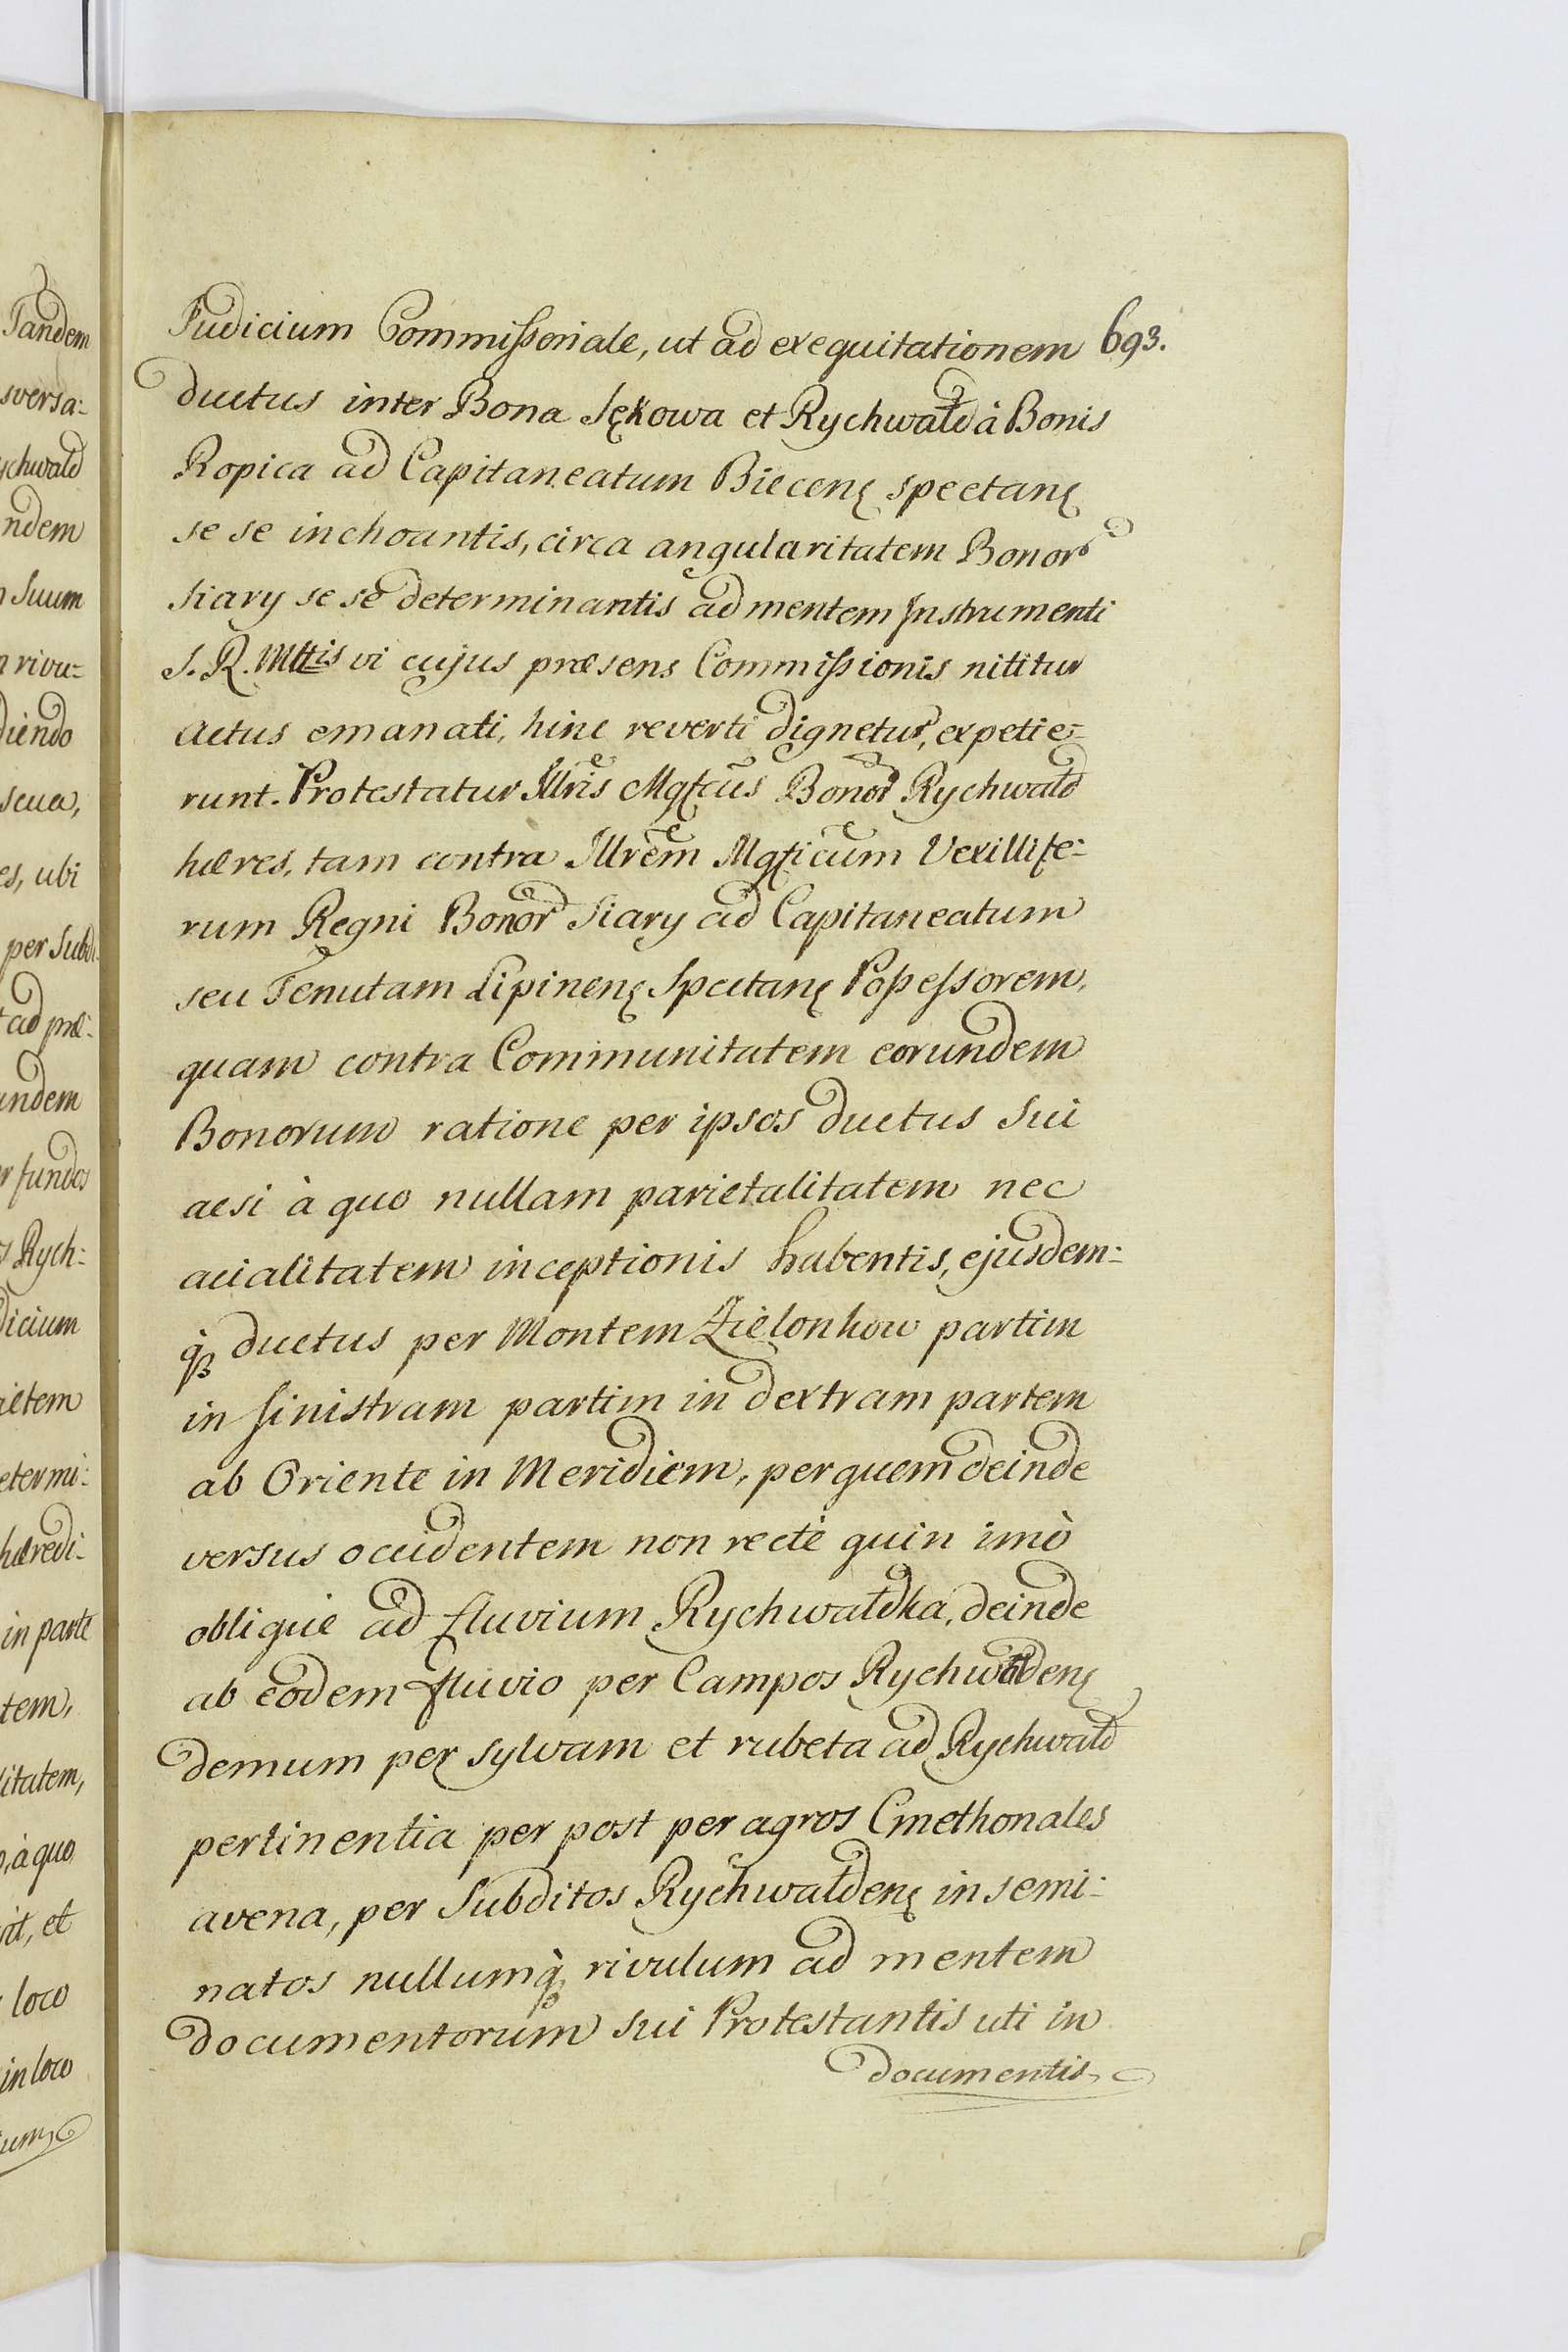 693.
Judicium Commissoriale, ut ad exequitationem
ductus inter Bona Sękowa et Rychwałd à Bonis
Ropica ad Capitaneatum Biecenς spectanς
se se inchoantis, circa angularitatem Bonor
Siary se se determinantis ad mentem Instrumenti
S. R. Mttis vi cujus præsens Commissionis nititur
actus emanati, hinc reverti dignetur, expetie-
runt. Protestatur Illris Mgfcus Bonor Rychwałd
hæres, tam contra Illrem Mgficum Vexillife-
rum Regni Bonor Siary ad Capitaneatum
seu Tenutam Lipinenς Spectanς Possessorem,
quam contra Communitatem eorundem
Bonorum ratione per ipsos ductus sui
acsi à quo nullam parietalitatem nec
acialitatem inceptionis habentis, ejusdem-
q̀ ductus per Montem Zielonkow partim
in sinistram partim in dextram partem
ab Oriente in Meridiem, per quem deinde
versus occidentem non rectè quin imò
oblique ad fluvium Rychwałdka, deinde
ab eodem fluvio per Campos Rychwałdenς
demum per sylvam et rubeta ad Rychwałd
pertinentia per post per agros Cmethonales
avena, per Subditos Rychwałdenς insemi-
natos nullumq̀ rivulum ad mentem
documentorum sui Protestantis uti in
documentis
Tandem
sversa:
ychwałd
ndem
Suum
rivu-
diendo
es, ubi
per Subdi
ad præ-
undem
fundos
Rych-
dicium
ietem
etermi-
hæredi-
in parte
tem,
litatem,
à quo
et
loco
in loco